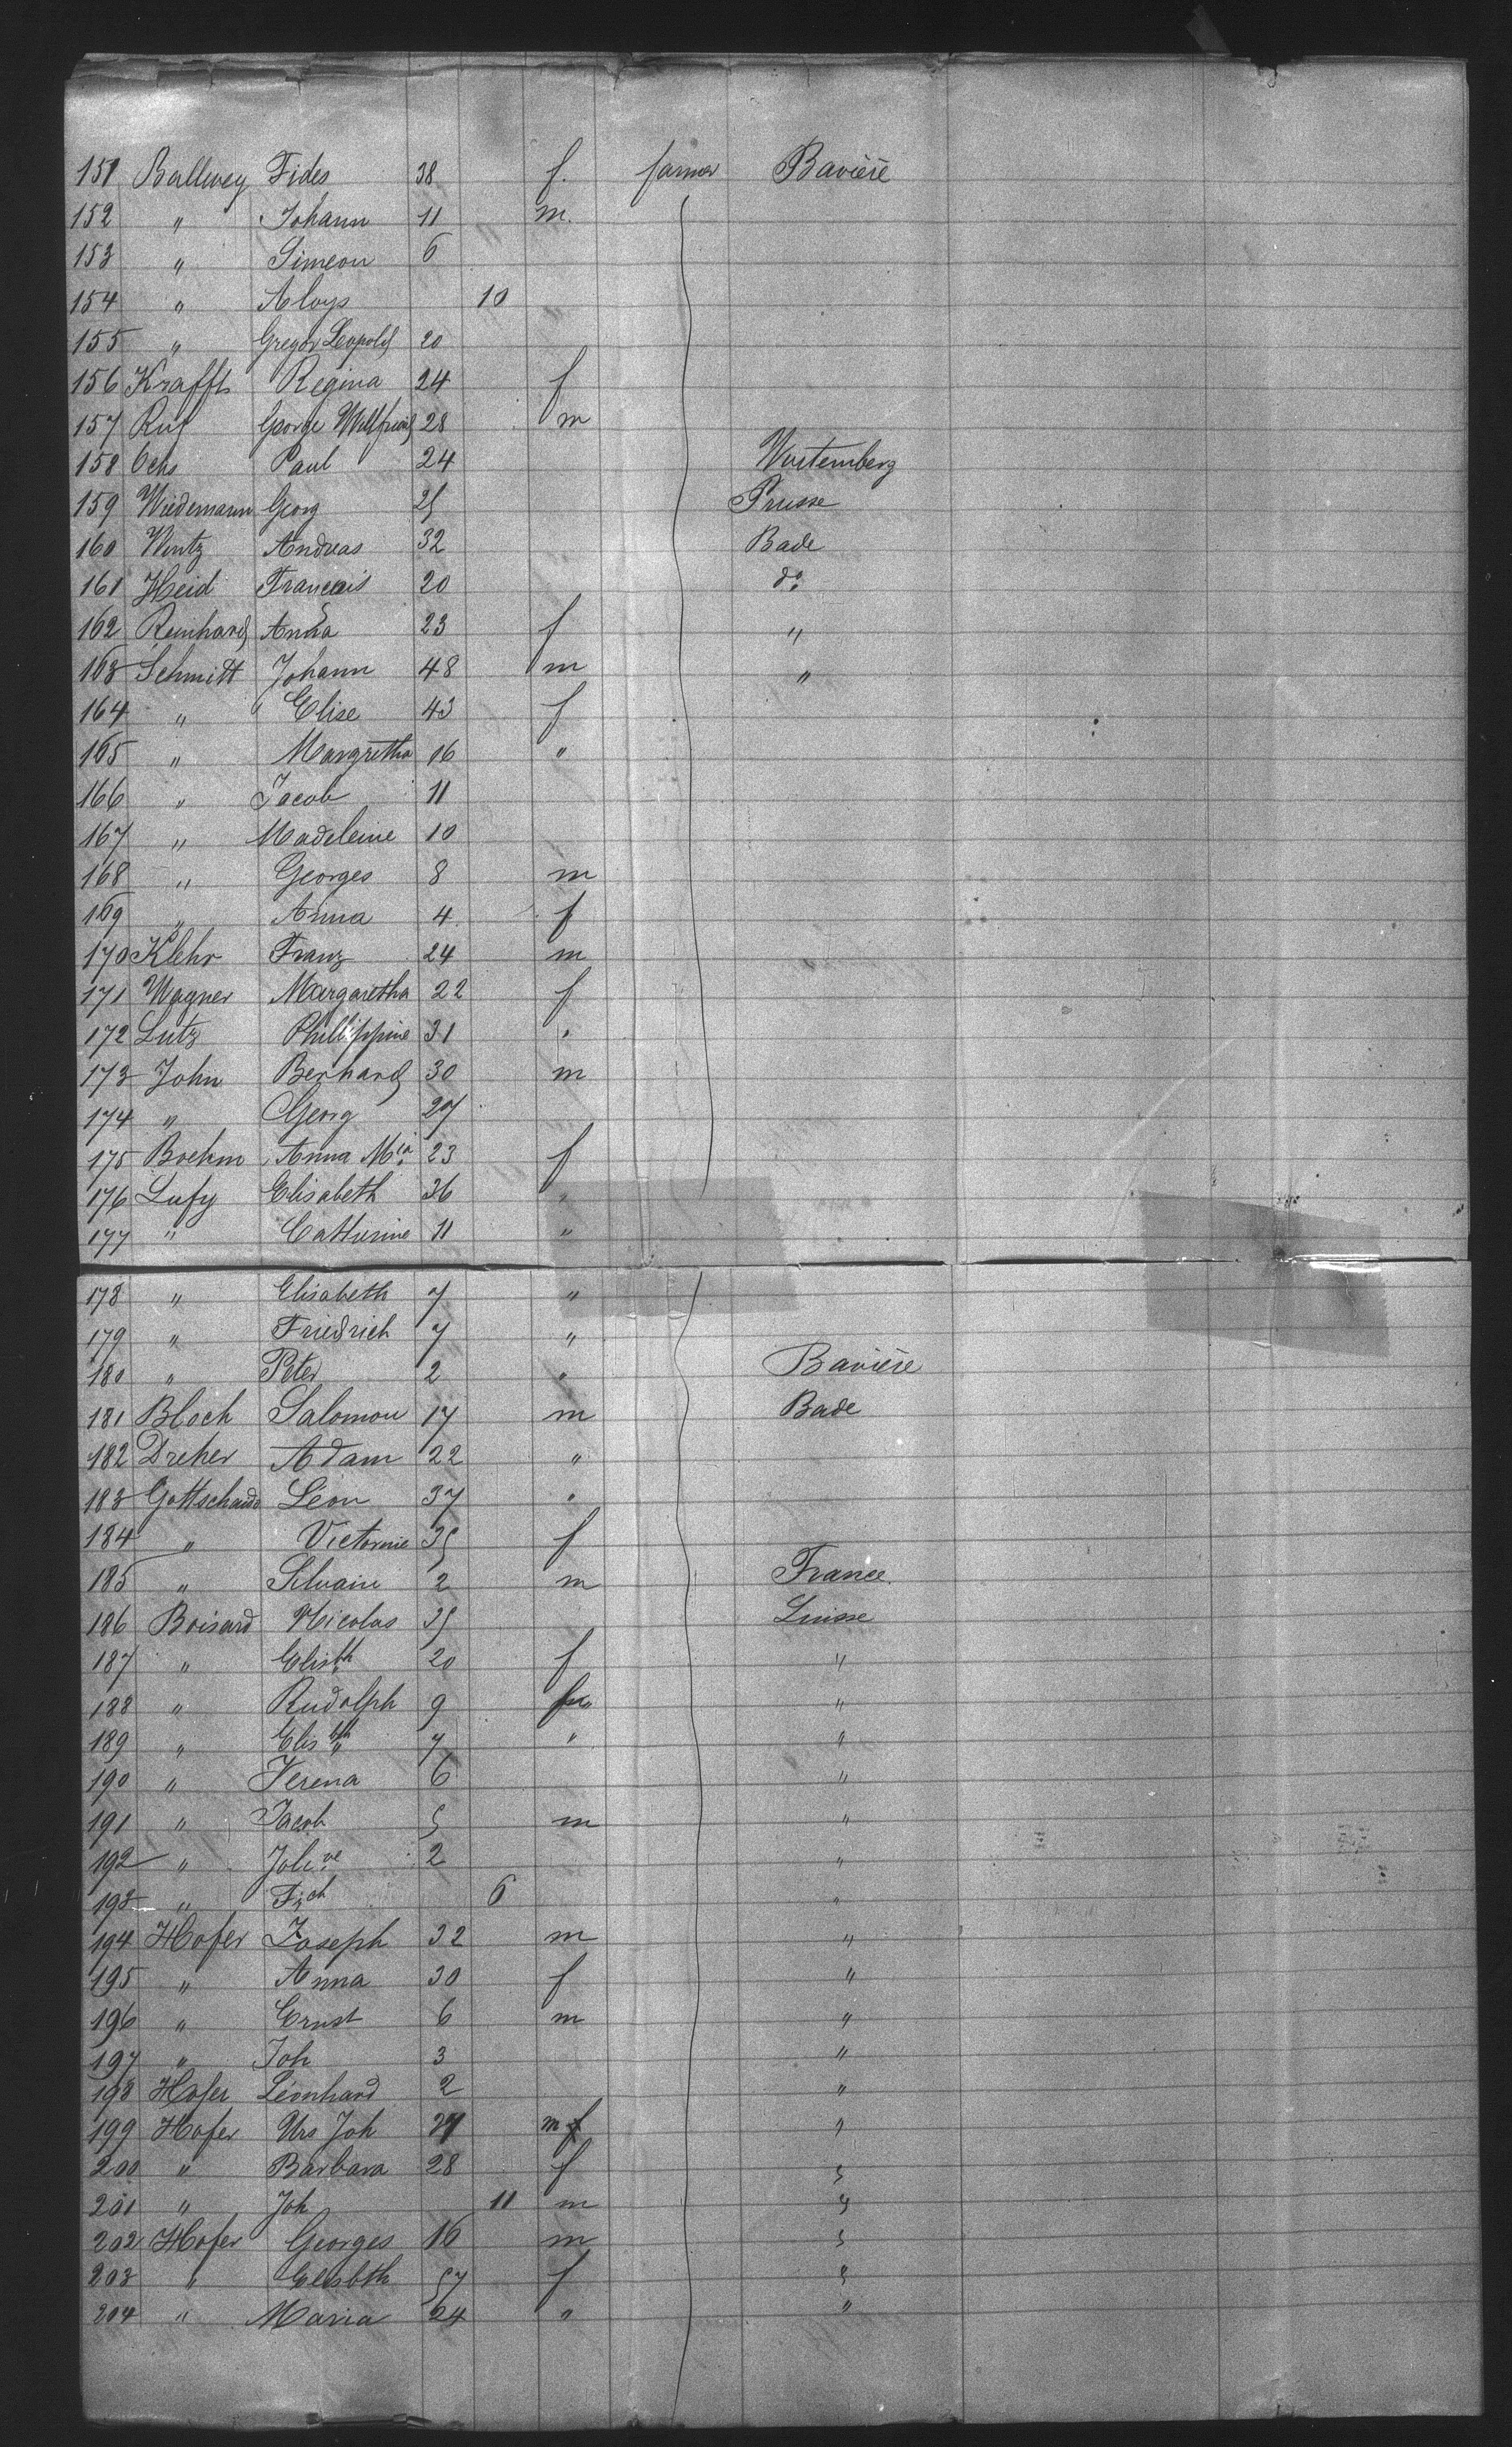 151 Ballwey Fides 38 f. farmer Bavière
152 " Johann 11 m.
153 " Simeon 6
154 " Aloys 10
155 " Gregor Leopold 20
156 Krafft Regina 24 f
157 Ruf George 28 m
158 Ochs Paul 24 Wurtemberg
159 Wiedemann Georg 25 Prusse
160 Wintz Andreas 32 Bade
161 Heid Francois 20 do
162 Reinhard Anna 23 f "
163 Schmitt Johann 48 m "
164 " Elise 43 f
165 " Margretha 16 "
166 " Jacob 11
167 " Madeleine 10
168 " Georges 8 m
169 " Anna 4 f
170 Klehr Franz 24 m
171 Wagner Margaretha 22 f
172 Lutz Philippine 31 "
173 John Berhard 30 m
174 " Georg 27
175 Boehm Anna Mia 23 f
176 Lufy Elisabeth 36 "
177 " Catherine 11 "
178 " Elisabeth 7 "
179 " Friedrich 7 "
180 " Peter 2 " Bavière
181 Bloch Salomon 17 m Bade
182 Dreher Adam 22 "
183 Léon 37 "
184 " Victorine 35 f
185 " Silvain 2 m France
186 Boisard Nicolas 35 Suisse
187 " Elisbth 20 f "
188 " Rudolph 9 "
189 " Elisbth 7 " "
190 " Verena 6 "
191 " Jacob 5 m "
192 " 2 "
193 " Frch 6 "
194 Hofer Joseph 32 m "
195 " Anna 30 f "
196 " Ernst 6 m "
197 " Joh 3 "
198 Hofer Léonhard 2 "
199 Hofer Urs Joh 27 m "
200 " Barbara 28 f "
201 " Joh 11 m "
202 Hofer Georges 16 m "
203 " Elisbth 57 f "
204 " Maria 24 " "